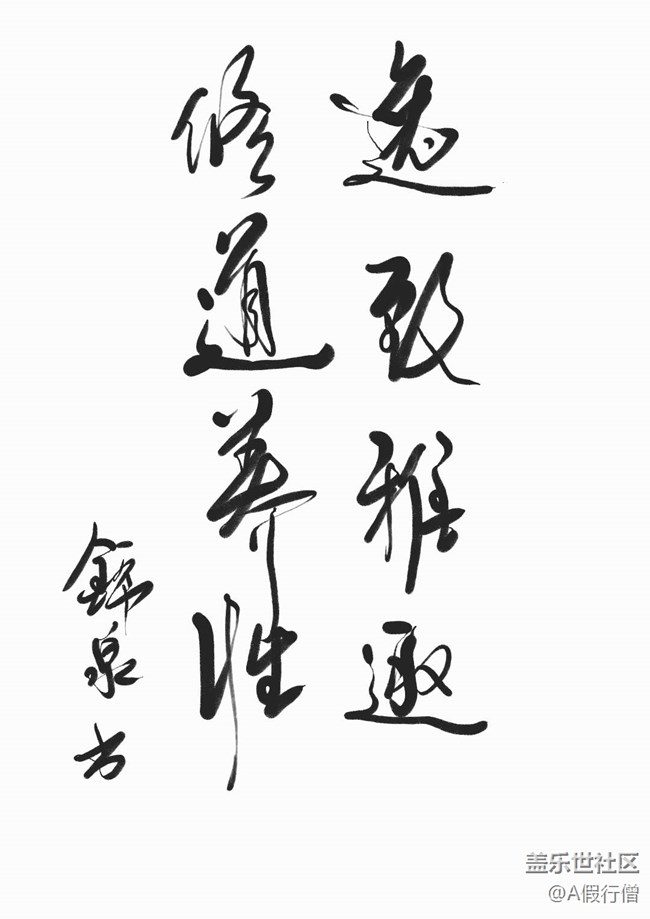 逸致雅趣
修道养性
锦泉书
盖乐世社区
@A假行僧